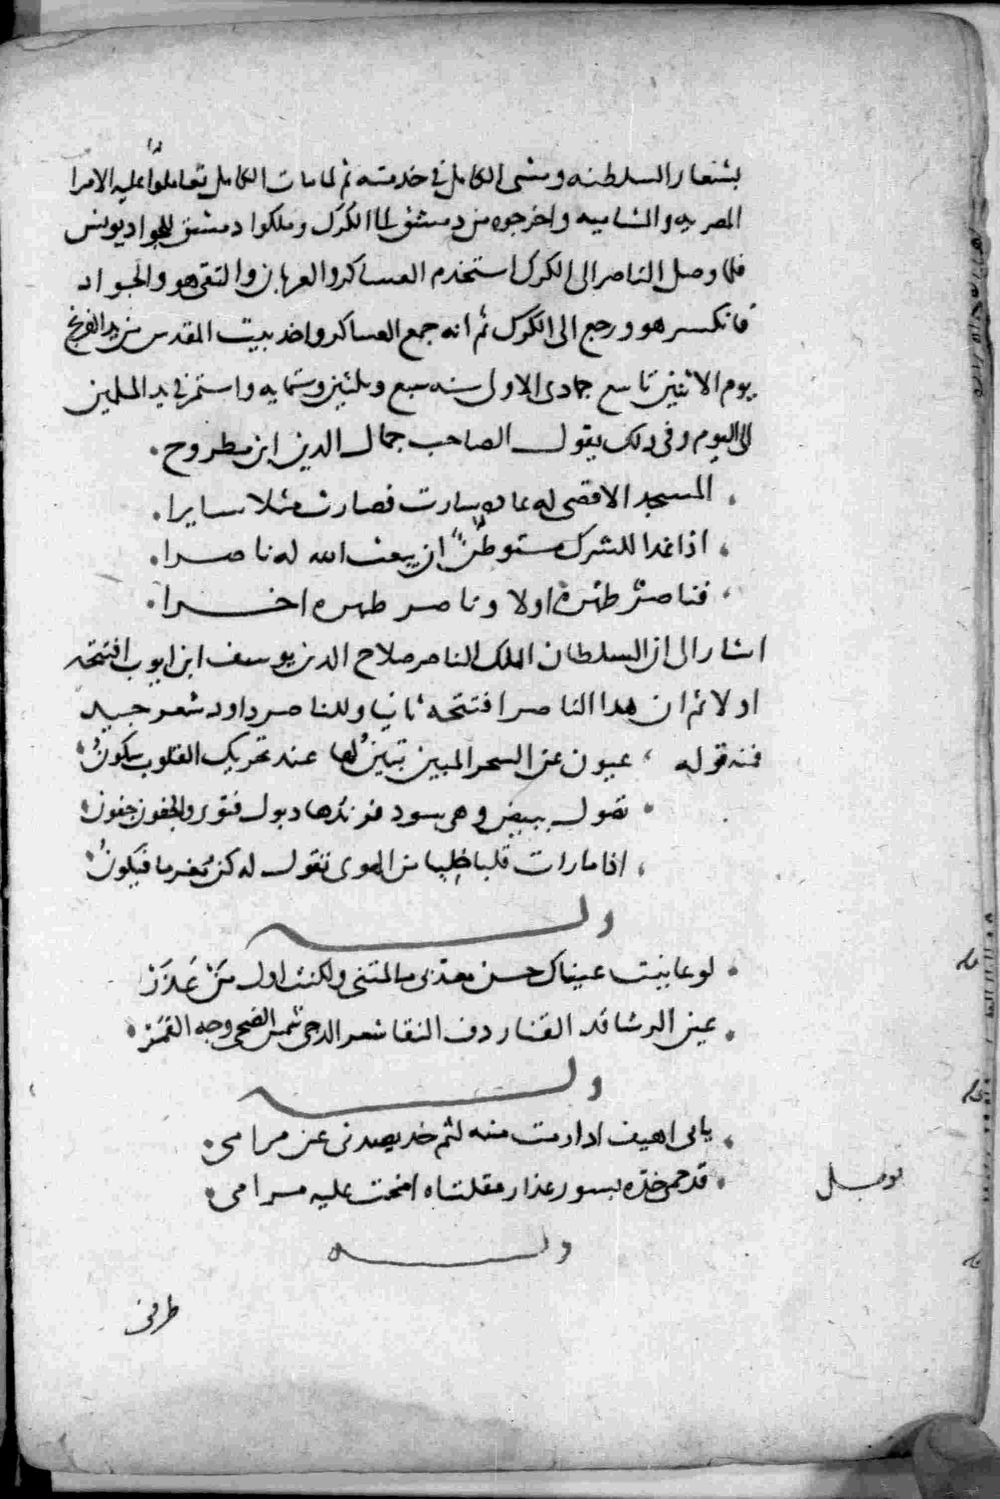 بشعار السلطنه ومشى الكامل في خدمته ثم لما مات الكامل تعاملوا عليه الامرا
المصريه والشاميه واخرجوه من دمشق لما الكرك وملكوا دمشق للجواد يونس
فلما وصل الناصر الى الكرك استخدم العساكر والعربان والتقى هو والجواد
فانكسر هو ورجع الى الكرك ثم انه جمع العساكر واخد بيت المقدس من يد الفرنج
يوم الاثنين تاسع جمادى الاول سنه سبع وثلثين وستمايه واستمر في يد المسلمين
الى اليوم وفي دلك يقول الصاحب جمال الدين ابن مطروح .
المسجد الاقصى له عاده سارت فصارت مثلا سايرا .
اذا غدا للشرك مستوطنًا ان يبعث الله له ناصرا .
فناصر طهره اولا وناصر طهره اخرا .
اشار الى ان السلطان الملك الناصر صلاح الدين يوسف ابن ايوب افتتحه
اولا ثم ان هدا الناصر افتتحه ثانيا وللناصر داود شعر جيد
فمنه قوله عيون عن السحر المبين تبين لها عند تحريك القلوب سكون
تصول ببيض وهي سود فرندها دبول فتور والجفون جفون
اذا ما رات قلبا خليا من الهوى تقول له كن مغرما فيكون
وله
لو عاينت عيناك حسن معذبي ما لمتني ولكنت اول من عذر
عين الرشا قد القنا ردف النقا شعر الدجى شمس الضحى وجه القمر
وله
بابي اهيف ادا رمت منه لثم خد يصدني عن مرامي .
قد حمى خده بسور عذار مقلتاه اضحت عليه مرامي
وله
طرفي